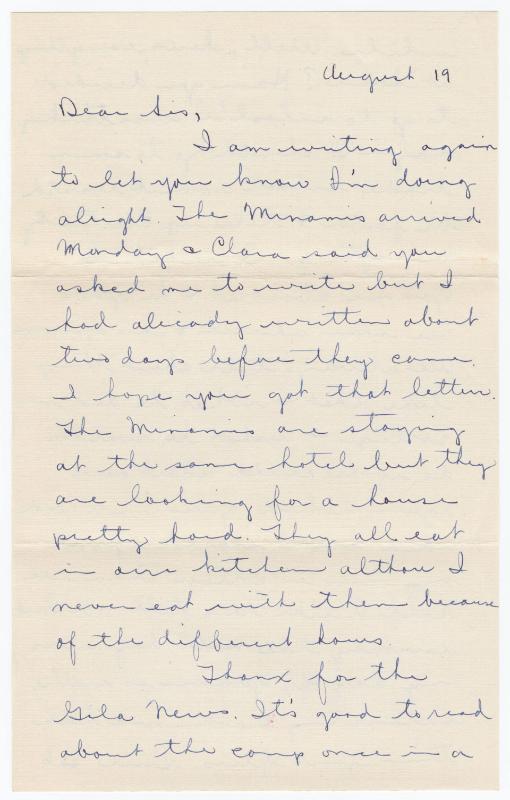 August 19
Dear Sis,
I am writing again
to let you know I'm doing
alright. The Minamis arrived
Monday & Clara said you
asked me to write but I
had already written about
two days before they came.
I hope you got that letter.
The Minamis are staying
at the same hotel but they
are looking for a house
pretty hard. They all eat
in our kitchen althou I
never eat with them because
of the different hours.
Thanx for the
Gila News. It's good to read
about the camp once in a